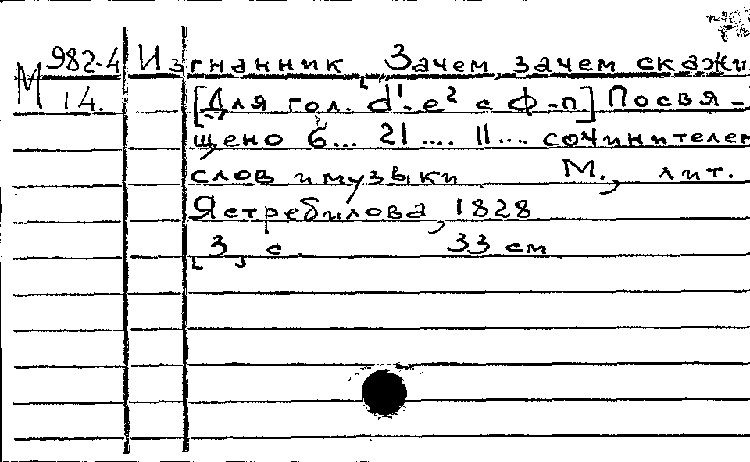 М 982-4 Изгнанник Зачем, зачем скажи
14. [Для гол. d¹-e² с ф-п.] Посвя-
щено б... 21.... 11... сочинителем
слов и музыки. М., лит.
Ястребилова, 1828
[3] с 33 см